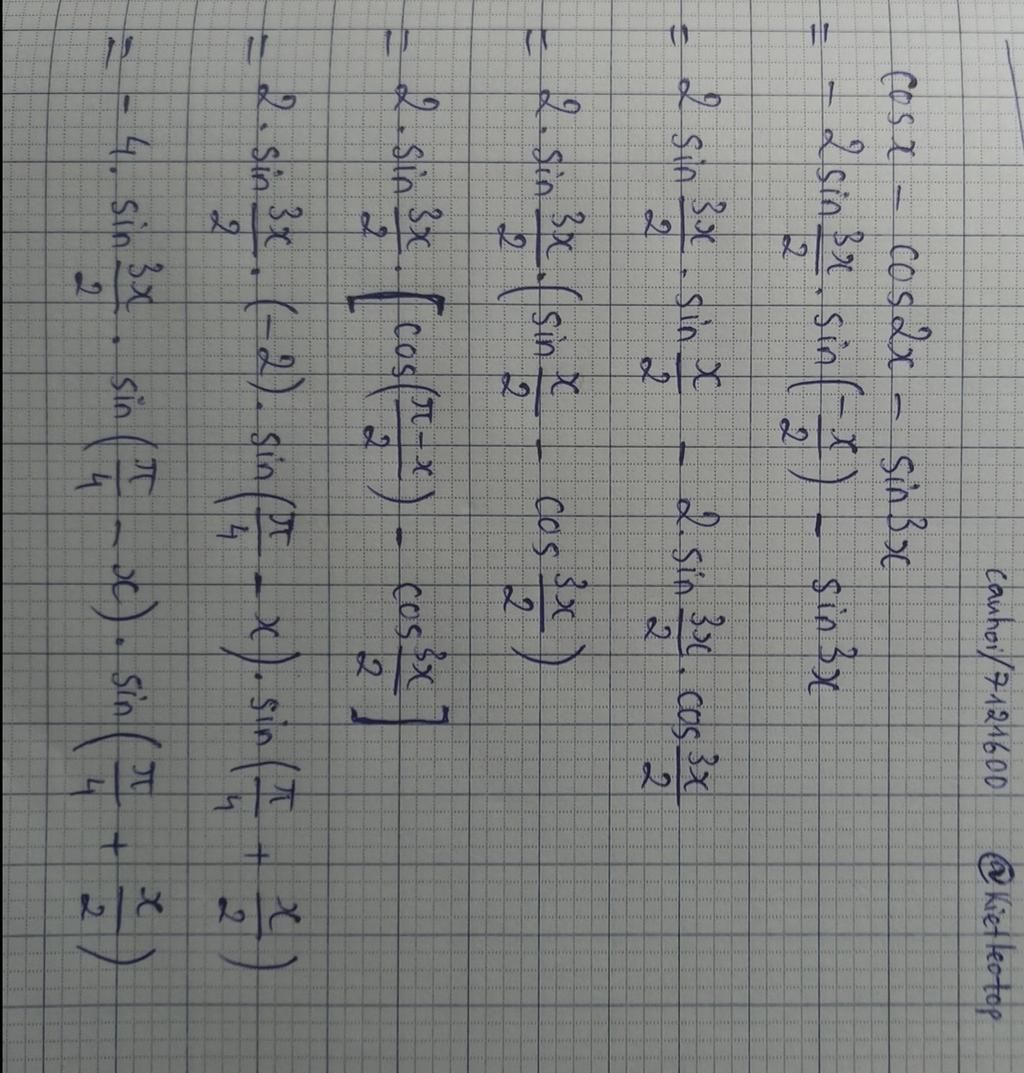 cauhoi/7121600 @Kietleotop
cos x - cos 2x - sin 3x
= - 2 sin 3x/2 . sin (-x/2) - sin 3x
= 2 sin 3x/2 . sin x/2 - 2. sin 3x/2 . cos 3x/2
= 2. sin 3x/2 . (sin x/2 - cos 3x/2)
= 2. sin 3x/2 . [cos (π-x/2) - cos 3x/2]
= 2. sin 3x/2 . (-2). sin (π/4 - x). sin (π/4 + x/2)
= - 4. sin 3x/2 . sin (π/4 - x). sin (π/4 + x/2)